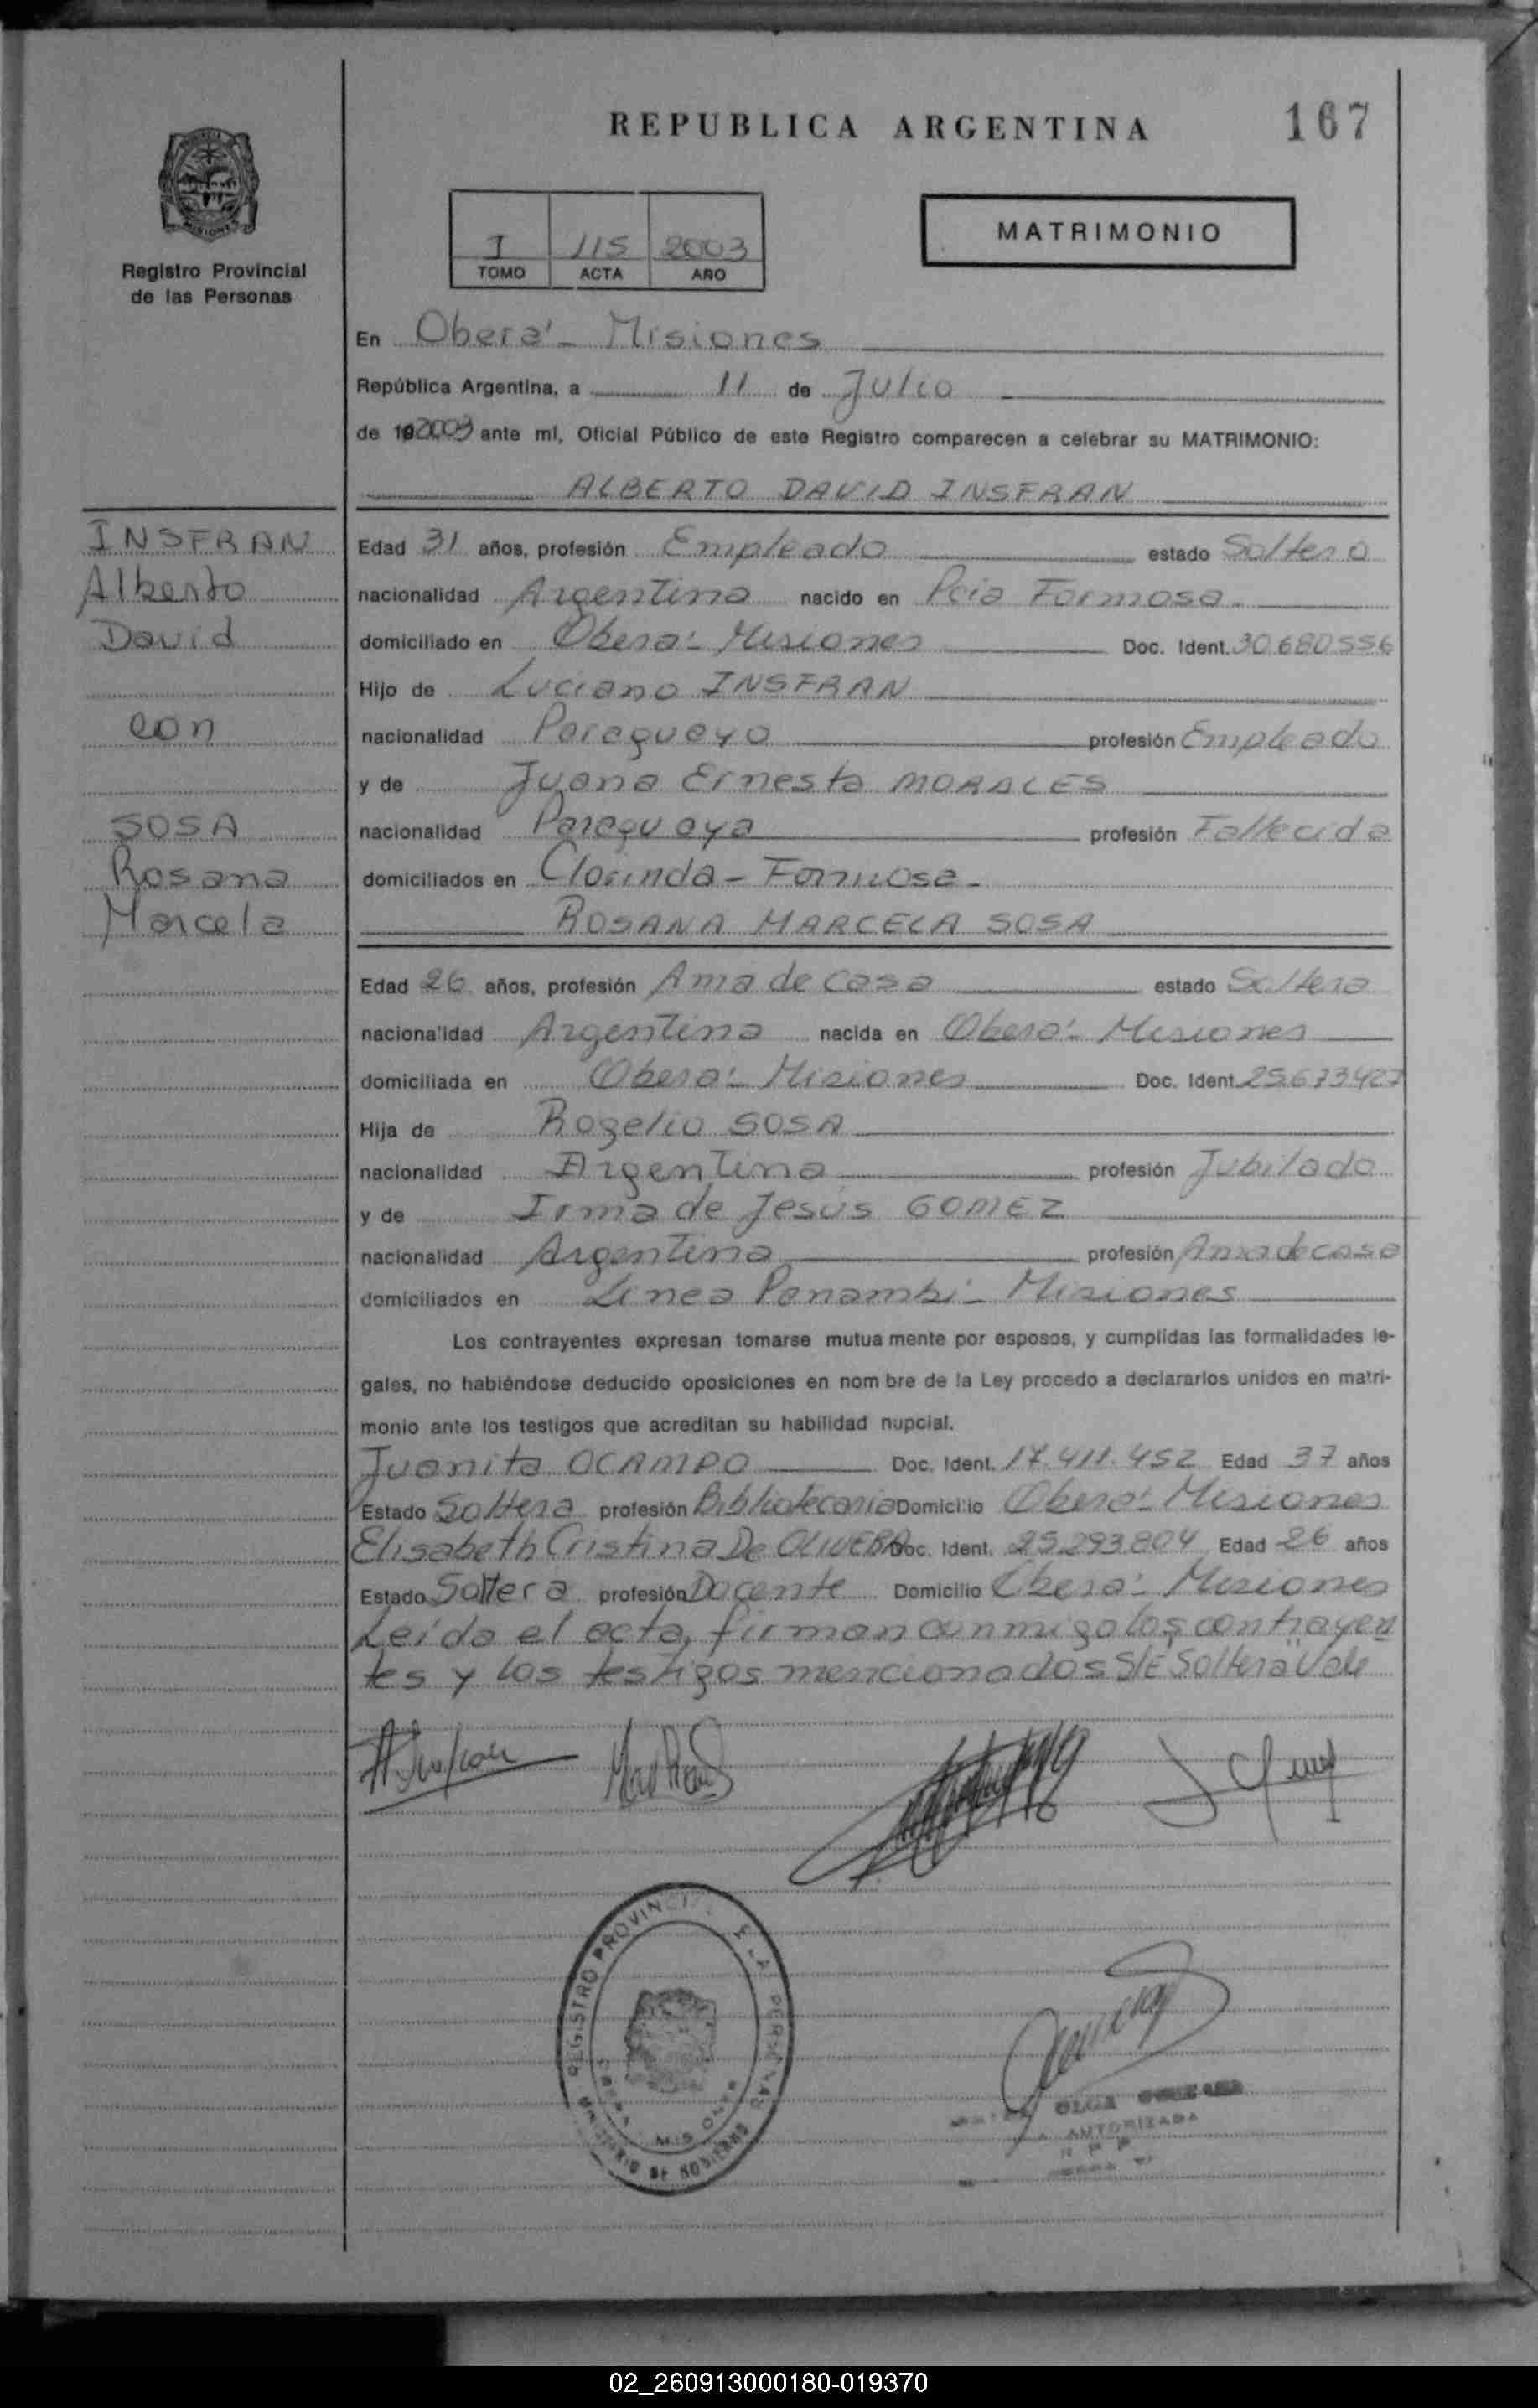 REPUBLICA ARGENTINA
167
MATRIMONIO
I 115 2003
TOMO ACTA AÑO
Registro Provincial
de las Personas
En Oberá - Misiones
República Argentina, a 11 de Julio
de 19 2003 ante mi, Oficial Público de este Registro comparecen a celebrar su MATRIMONIO:
ALBERTO DAVID INSFRAN
INSFRAN
Alberto
David
con
SOSA
Rosana
Marcela
Edad 31 años, profesión Empleado estado Soltero
nacionalidad Argentina nacido en Pcia Formosa.
domiciliado en Oberá - Misiones Doc. Ident. 30680556
Hijo de Luciano INSFRAN
nacionalidad Paraguayo profesión Empleado
y de Juana Ernesta MORALES
nacionalidad Paraguaya profesión Fallecida
domiciliados en Clorinda - Formosa -
ROSANA MARCELA SOSA
Edad 26 años, profesión Ama de casa estado Soltera
nacionalidad Argentina nacida en Oberá - Misiones
domiciliada en Oberá - Misiones Doc. Ident. 25673427
Hija de Rogelio SOSA
nacionalidad Argentina profesión Jubilado
y de Irma de Jesús GOMEZ
nacionalidad Argentina profesión Ama de casa
domiciliados en Linea Panambi - Misiones
Los contrayentes expresan tomarse mutua mente por esposos, y cumplidas las formalidades le-
gales, no habiéndose deducido oposiciones en nom bre de la Ley procedo a declararlos unidos en matri-
monio ante los testigos que acreditan su habilidad nupcial.
Juanita OCAMPO Doc. Ident. 17.411.452 Edad 37 años
Estado Soltera profesión Bibliotecaria Domicilio Oberá - Misiones
Elisabeth Cristina De OLIVERA Doc. Ident. 25.293.804 Edad 26 años
Estado Soltera profesión Docente Domicilio Oberá - Misiones
Leída el acta, firman conmigo los contrayen
tes y los testigos mencionados S/E "Soltera" Vale
REGISTRO PROVINCIAL
MINISTERIO DE GOBIERNO
OLGA
AUTORIZADA
02_260913000180-019370